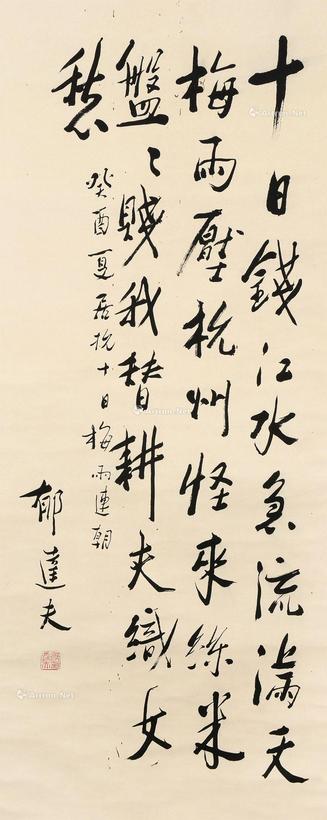 十日錢江水急流滿天
梅雨壓杭州怪來絲米
盤〻賤我替耕夫織女
愁
癸酉夏居杭十日梅雨連朝
郁達夫
Artron.Net